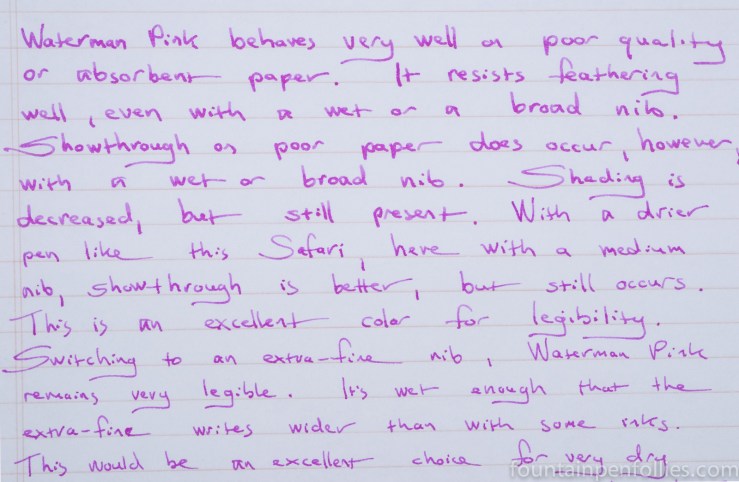 Waterman Pink behaves very well on poor quality
or absorbent paper. It resists feathering
well, even with a wet or a broad nib.
Showthrough on poor paper does occur, however,
with a wet or broad nib. Shading is
decreased, but still present. With a drier
pen like this Safari, here with a medium
nib, showthrough is better, but still occurs.
This is an excellent color for legibility.
Switching to an extra-fine nib, Waterman Pink
remains very legible. It's wet enough that the
extra-fine writes wider than with some inks.
This would be an excellent choice for very dry
fountainpenfollies.com